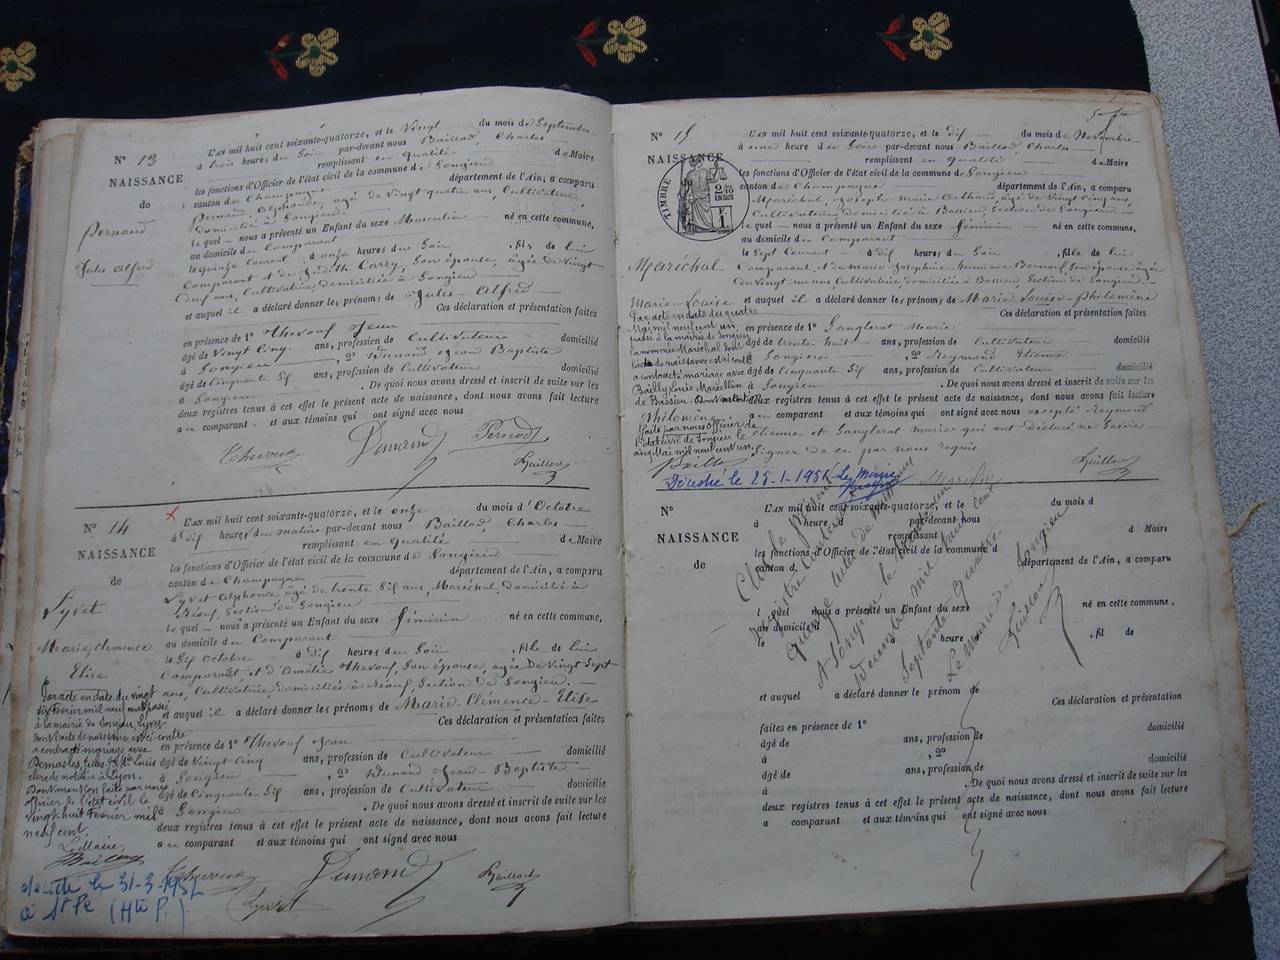 Nº 13
NAISSANCE
de
Pernaud
Jules Alfred
L'AN mil huit cent soixante-quatorze, et le Vingt du mois de Septembre
à trois heures du Soir par-devant nous Baillod, Charles
remplissant en qualité de Maire
les fonctions d'Officier de l'état civil de la commune de Songieu
canton de Champagne département de l'Ain, a comparu
Pernaud, Alphonse, âgé de Vingt quatre ans, Cultivateur,
domicilié à Songieu
le quel — nous a présenté un Enfant du sexe Masculin né en cette commune,
au domicile du Comparant
le quinze Courant à onze heures du Soir, fils de lui
Comparant et de Judith Carry, Son épouse, âgée de Vingt
Neuf ans, Cultivatrice, domiciliée à Songieu
et auquel il a déclaré donner les prénoms de Jules-Alfred
Ces déclaration et présentation faites
en présence de 1º Jean
âgé de Vingt Cinq ans, profession de Cultivateur domicilié
à Songieu, 2º Dunand Jean Baptiste
âgé de Cinquante Six ans, profession de Cultivateur domicilié
à Songieu. De quoi nous avons dressé et inscrit de suite sur les
deux registres tenus à cet effet le présent acte de naissance, dont nous avons fait lecture
a u comparant et aux témoins qui ont signé avec nous
Nº 14
NAISSANCE
de
Lyvet
Marie, Clémence
Elise
L'AN mil huit cent soixante-quatorze, et le onze du mois d'Octobre
à dix heures du matin par-devant nous Baillod, Charles
remplissant en qualité de Maire
les fonctions d'Officier de l'état civil de la commune de Songieu
canton de Champagne département de l'Ain, a comparu
Lyvet Alphonse âgé de trente Six ans, Maréchal, domicilié à
Section de Songieu
le quel — nous a présenté un Enfant du sexe féminin né en cette commune,
au domicile du Comparant
le dix Octobre à dix heures du Soir, fille de lui
Comparant et d'Amélie Son épouse, âgée de Vingt Sept
ans, Cultivatrice domiciliée à Section de Songieu.
et auquel il a déclaré donner les prénoms de Marie-Clémence-Elise
Ces déclaration et présentation faites
en présence de 1º Jean
âgé de Vingt Cinq ans, profession de Cultivateur domicilié
à Songieu, 2º Dunand Jean-Baptiste
âgé de Cinquante Six ans, profession de Cultivateur domicilié
à Songieu. De quoi nous avons dressé et inscrit de suite sur les
deux registres tenus à cet effet le présent acte de naissance, dont nous avons fait lecture
a u comparant et aux témoins qui ont signé avec nous
Par acte en date du vingt
six février mil neuf cent passé
à la mairie de Songieu, Lyvet
dont l'acte de naissance est ci-contre
a contracté mariage avec
Jules Louis
clerc de notaire à Lyon.
Dont mention faite par nous
officier de l'état civil le
vingt huit Février mil
neuf cent.
Le Maire,
décédée le 31-3-1952
à St Pé (Htes P.)
Nº 15
NAISSANCE
TIMBRE
Maréchal
Marie-Louise
Philomène
L'AN mil huit cent soixante-quatorze, et le dix du mois de Novembre
à une heure du Soir par-devant nous Baillod, Charles
remplissant en qualité de Maire
les fonctions d'Officier de l'état civil de la commune de Songieu
canton de Champagne département de l'Ain, a comparu
Maréchal, Joseph Marie âgé de Vingt Cinq ans,
Cultivateur, domicilié à Bassieu, Section de Songieu
le quel — nous a présenté un Enfant du sexe féminin né en cette commune,
au domicile du Comparant
le Sept Courant à dix heures du Soir, fille de lui
Comparant, et de Marie Joséphine Son épouse âgée
de Vingt un ans Cultivatrice domiciliée à Bassieu, Section de Songieu.
et auquel il a déclaré donner les prénoms de Marie Louise-Philomène
Ces déclaration et présentation faites
en présence de 1º Ganglerat Marie
âgé de trente huit ans, profession de Cultivateur domicilié
à Songieu, 2º Reymond Etienne
âgé de Cinquante Six ans, profession de Cultivateur domicilié
à Songieu. De quoi nous avons dressé et inscrit de suite sur les
deux registres tenus à cet effet le présent acte de naissance, dont nous avons fait lecture
a u comparant et aux témoins qui ont signé avec nous excepté Reymond
Etienne et Ganglerat Marie qui ont déclaré ne Savoir
Signer de ce par nous requis
Par acte en date du quatre
Mai mil neuf cent un
passé à la mairie de Songieu
la nommée Maréchal dont
l'acte de naissance est ci contre
a contracté mariage avec
Bailly Louis Marcellin
de Bassieu. Dont mention
faite par nous officier de
l'état civil de Songieu le
cinq Mai mil neuf cent un.
Décédée le 25-1-1951 Le Maire
Nº
NAISSANCE
de
L'AN mil huit cent soixante-quatorze, et le du mois d
à heure d par-devant nous
remplissant d Maire
les fonctions d'Officier de l'état civil de la commune d
canton d département de l'Ain, a comparu
l quel nous a présenté un Enfant du sexe né en cette commune,
au domicile d
le heure, fil de
et auquel a déclaré donner le prénom de
Ces déclaration et présentation
faites en présence de 1º
âgé de ans, profession de domicilié
à, 2º
âgé de ans, profession de domicilié
à. De quoi nous avons dressé et inscrit de suite sur les
deux registres tenus à cet effet le présent acte de naissance, dont nous avons fait lecture
a comparant et aux témoins qui ont signé avec nous
Clos le présent
registre contenant
quinze actes de naissances
A Songieu le
Décembre mil huit cent
Septante Quatre
Le Maire de Songieu
Baillod